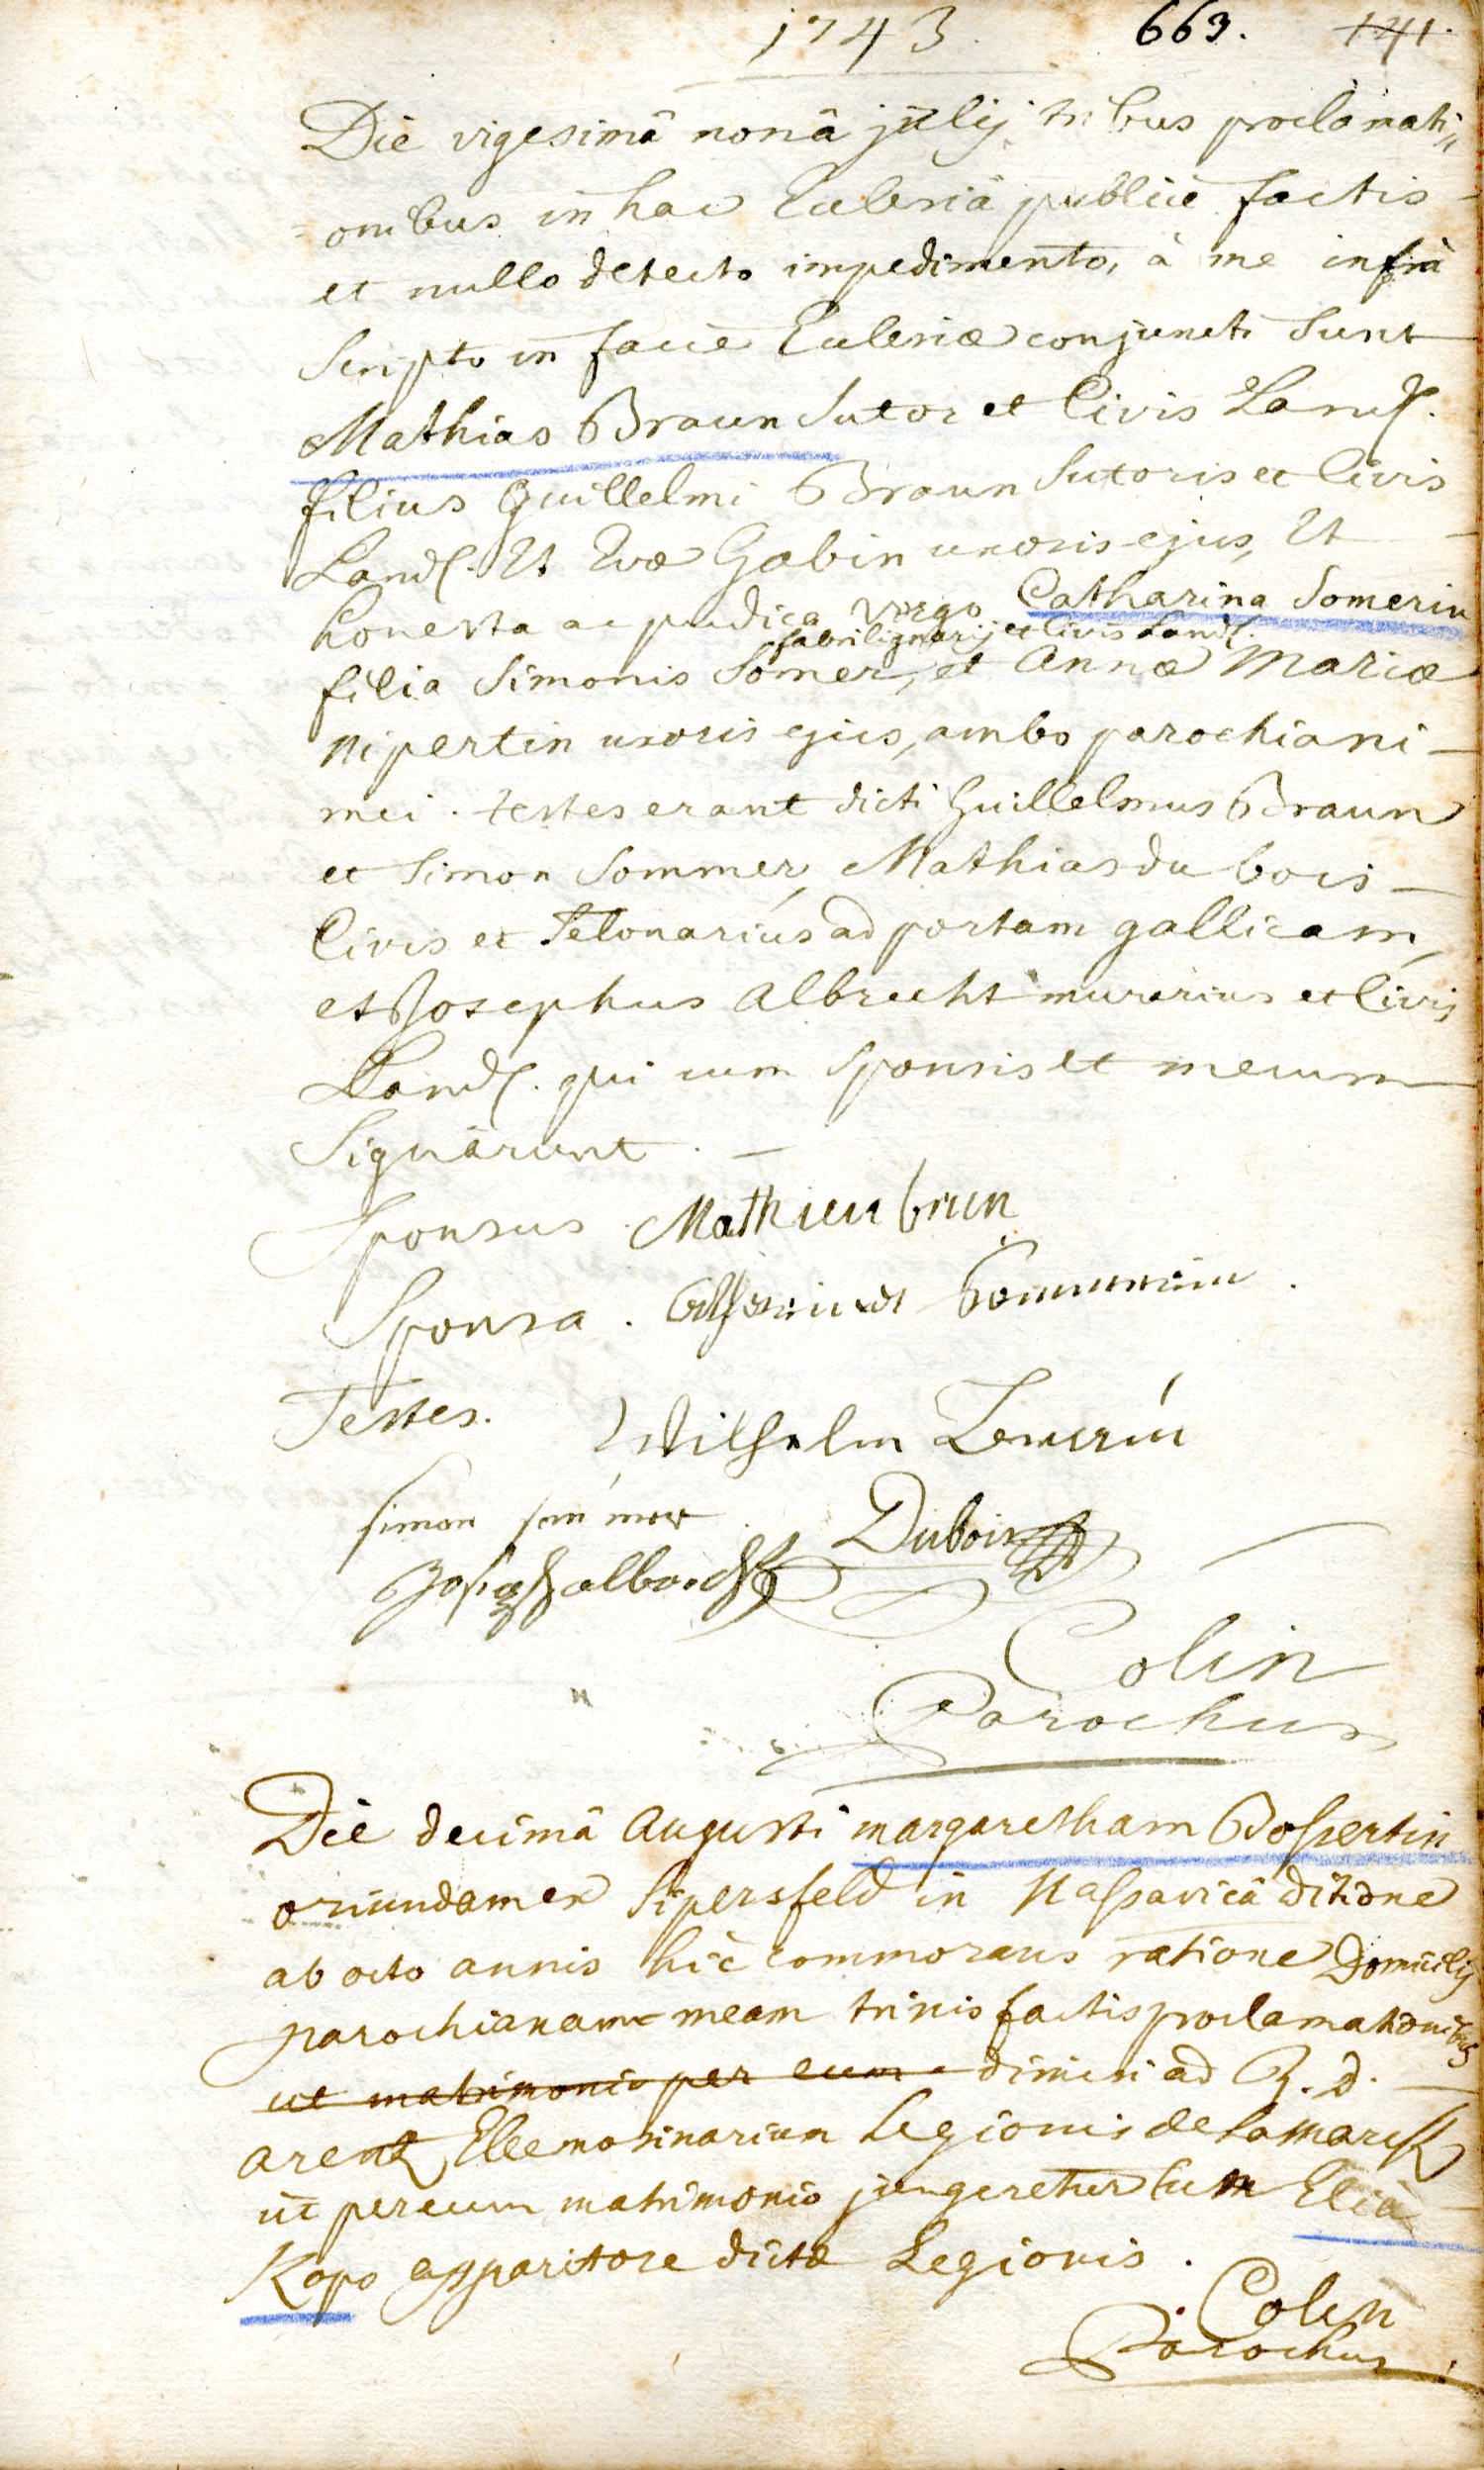 1743. 663. 141.
Die vigesimâ nonâ julij tribus proclamati„
onibus in hac Ecclesiâ publicè factis
et nullo detecto impedimento, à me infrà
scripto in facie Ecclesiæ conjuncti sunt
Mathias Braun sutor et Civis Land.
filius Guillelmi Braun sutoris et Civis
Land. Et Evæ Gabin uxoris ejus, Et
honesta ac pudica virgo Catharina Somerin
fabri lignarij et Civis Land.
filia Simonis Somer, et Annæ Mariæ
nipertin uxoris ejus, ambo parochiani
mei. testes erant dicti Guillelmus Braun
et Simon Sommer, Mathias du bois
Civis et Telonarius ad portam gallicam,
et Josephus Albrecht murarius et Civis
Land. qui cum sponsis et mecum
Signârunt.
Sponsus. Mathieu brun
Sponsa.
Testes. Wilhelm
simon sommer Dubois
Joseph albrecht
Colin
Parochus
Die decimâ Augusti margaretham Bossertin
oriundam ex Sipersfeld in Nassavicâ ditione
ab octo annis hìc commorans ratione Domicilij
parochianam meam trinis factis proclamationibus
ut matrimonio per eum dimisi ad R. d.
arentz Eleemosinarium Legionis de lamarck
ut per eum matrimonio jungeretur cum Eliâ
Kopo apparitore dictæ Legionis.
Colin
Parochus